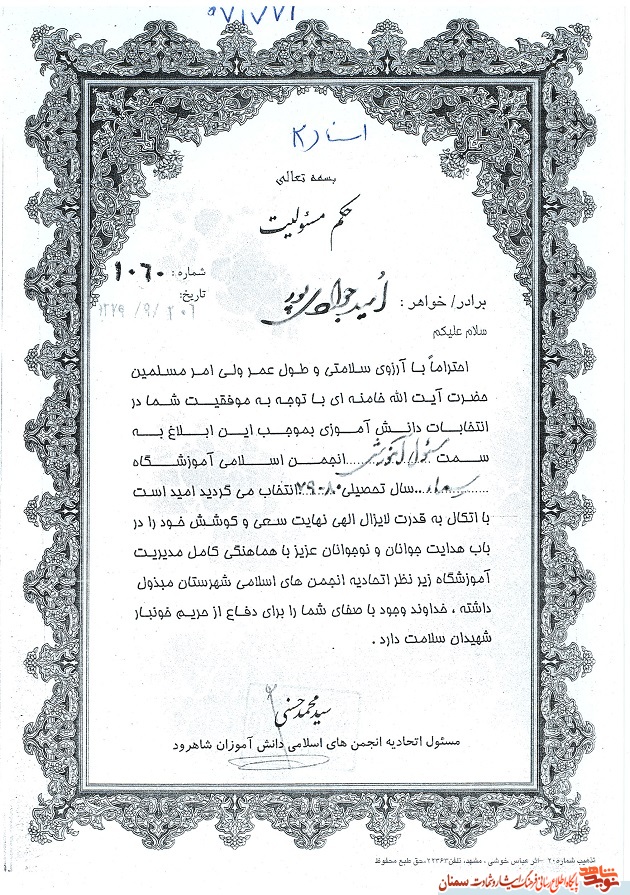 اسناد ۲
بسمه تعالی
حکم مسئولیت
شماره: ۱۰۶۰
تاریخ: ۱۳۷۹/۹/۲۰
برادر/ خواهر: امید جوادی پور
سلام علیکم
احتراماً با آرزوی سلامتی و طول عمر ولی امر مسلمین
حضرت آیت الله خامنه ای با توجه به موفقیت شما در
انتخابات دانش آموزی بموجب این ابلاغ به
سمت مسئول آموزش انجمن اسلامی آموزشگاه
سال تحصیلی ۸۰-۷۹ انتخاب می گردید امید است
با اتکال به قدرت لایزال الهی نهایت سعی و کوشش خود را در
باب هدایت جوانان و نوجوانان عزیز با هماهنگی کامل مدیریت
آموزشگاه زیر نظر اتحادیه انجمن های اسلامی شهرستان مبذول
داشته ، خداوند وجود با صفای شما را برای دفاع از حریم خونبار
شهیدان سلامت دارد .
سید محمد حسنی
مسئول اتحادیه انجمن های اسلامی دانش آموزان شاهرود
تذهیب شماره ۲۰ - اثر عباس خوشی ، مشهد، تلفن ۲۲۳۶۳ - حق طبع محفوظ
نوید شاهد
پایگاه اطلاع رسانی فرهنگ ایثار و شهادت سمنان